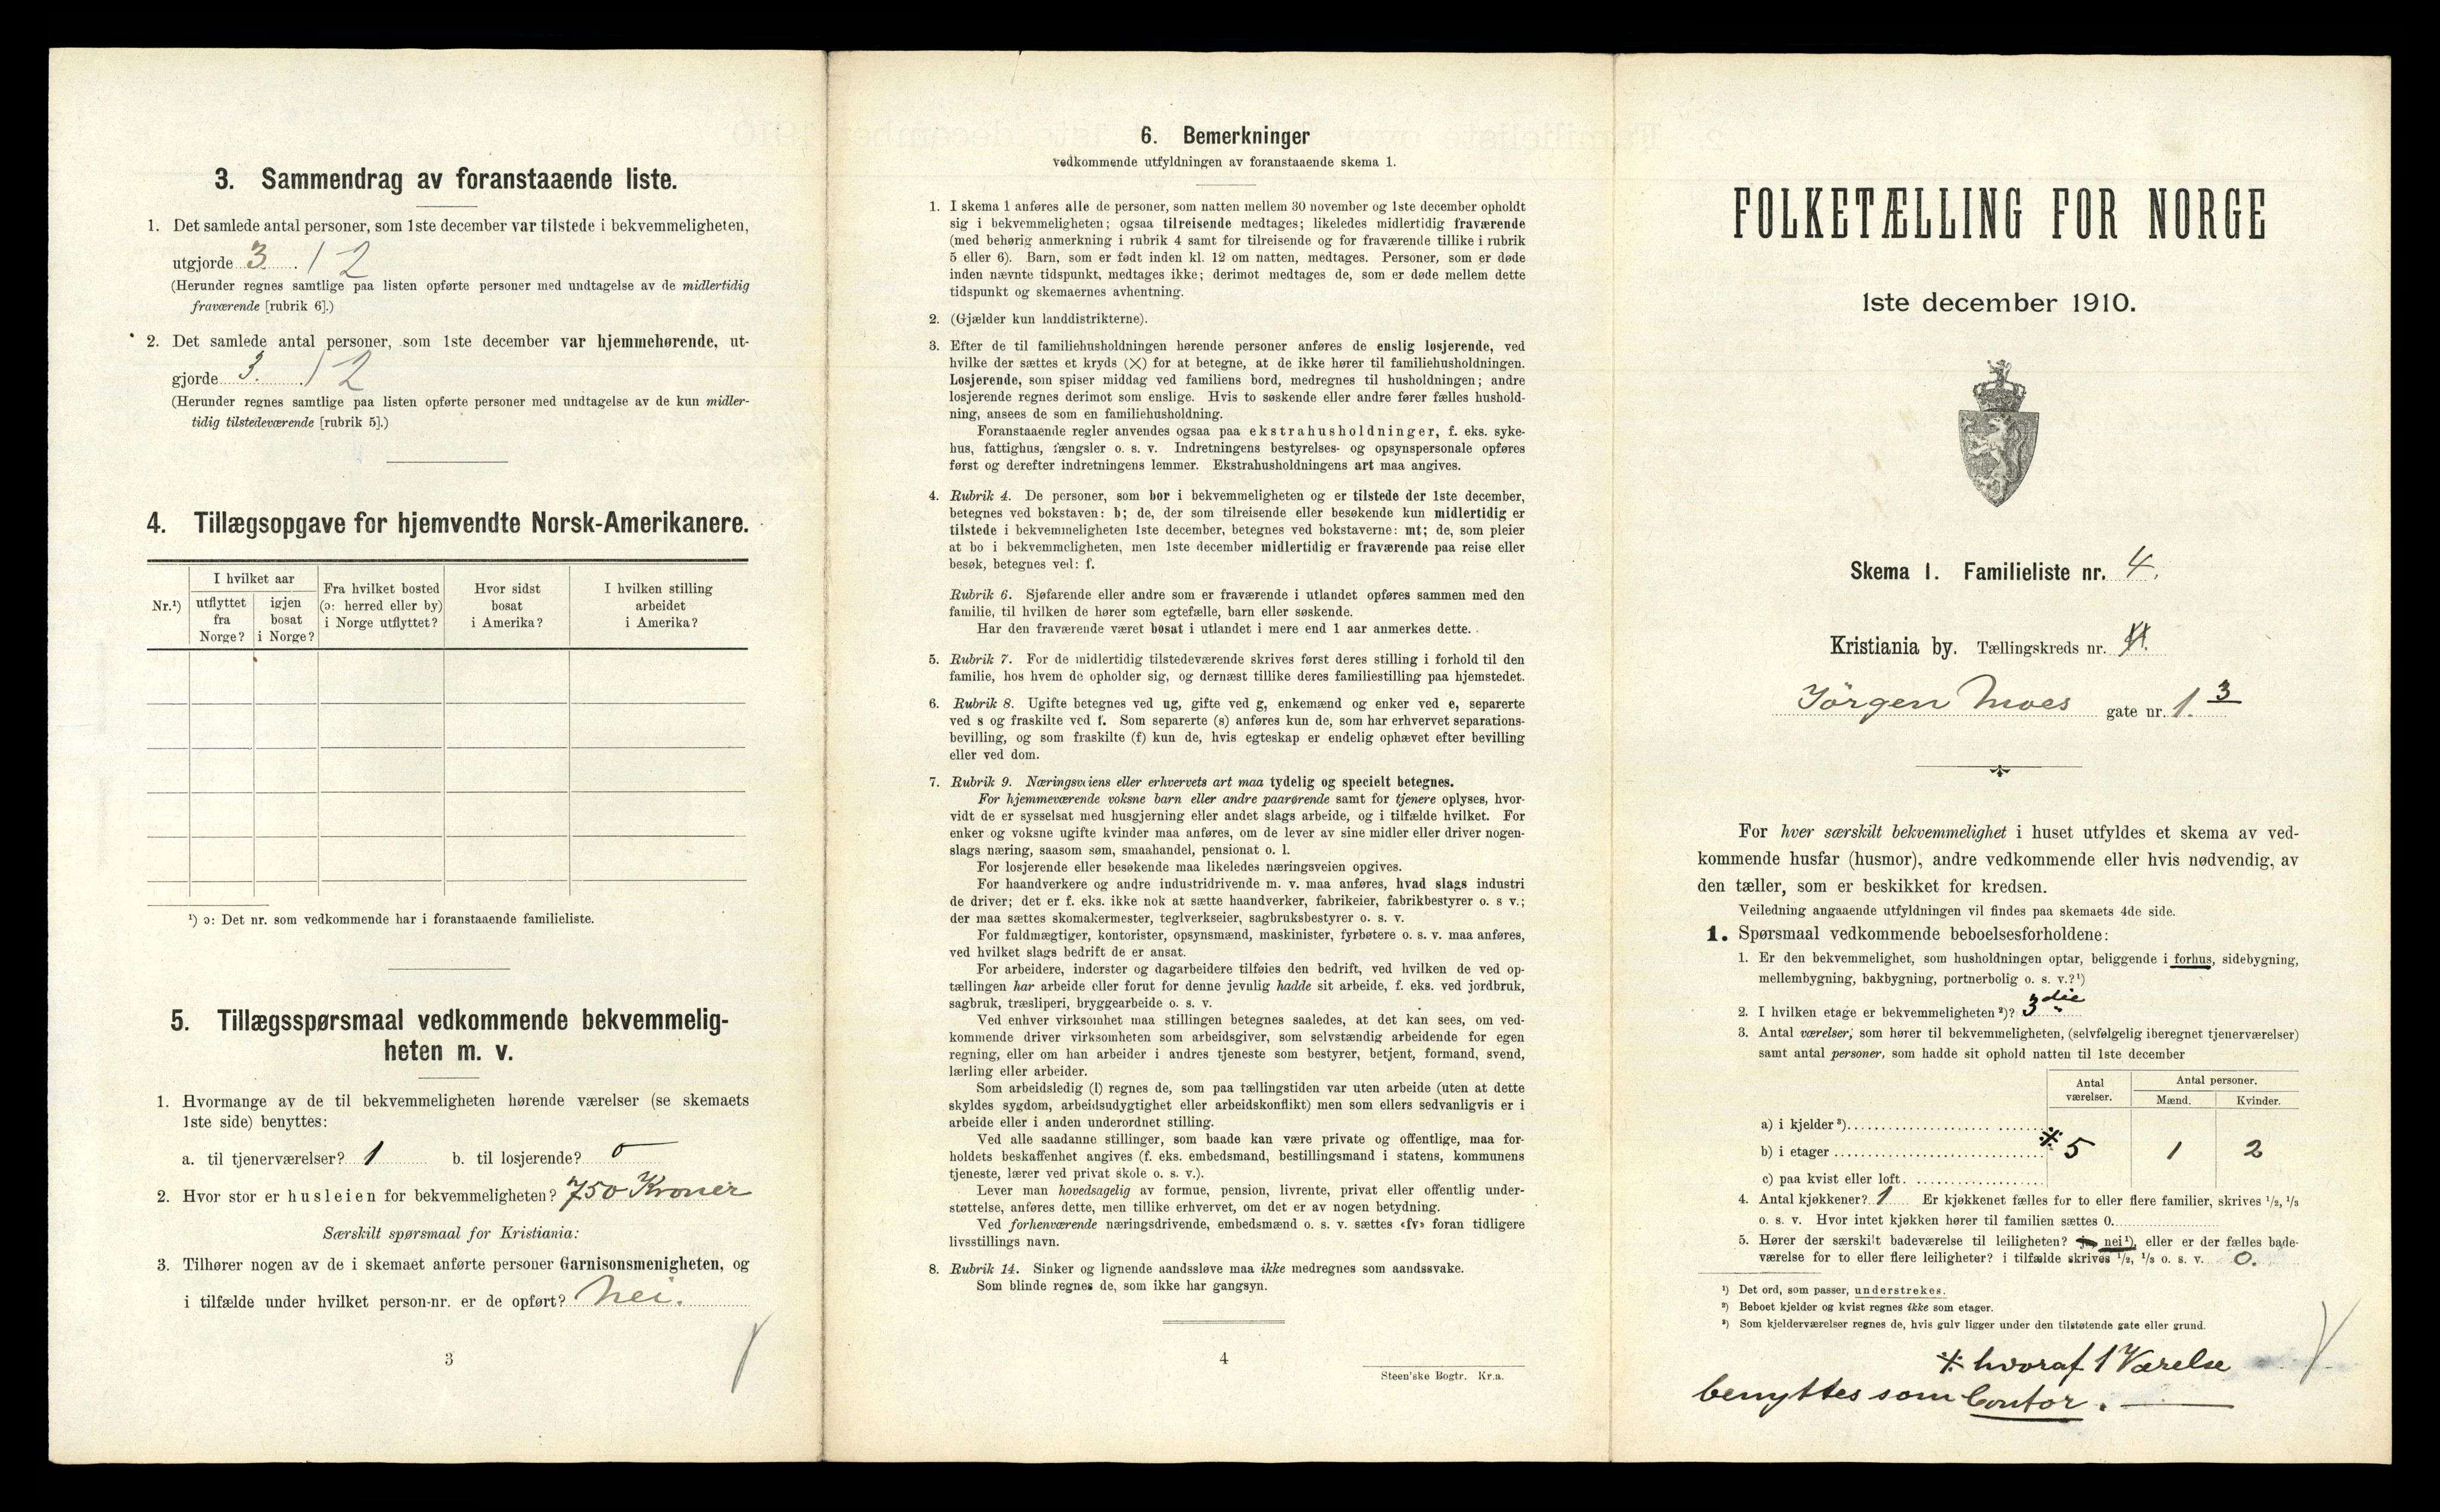 3. Sammendrag av foranstaaende liste.
1. Det samlede antal personer, som 1ste december var tilstede i bekvemmeligheten,
utgjorde 3. / 2
(Herunder regnes samtlige paa listen opførte personer med undtagelse av de midlertidig
fraværende [rubrik 6].)
2. Det samlede antal personer, som 1ste december var hjemmehørende, ut-
gjorde 3. / 2
(Herunder regnes samtlige paa listen opførte personer med undtagelse av de kun midler-
tidig tilstedeværende [rubrik 5].)
4. Tillægsopgave for hjemvendte Norsk-Amerikanere.
Nr.¹)
I hvilket aar
utflyttet
fra
Norge?
igjen
bosat
i Norge?
Fra hvilket bosted
(ɔ: herred eller by)
i Norge utflyttet?
Hvor sidst
bosat
i Amerika?
I hvilken stilling
arbeidet
i Amerika?
¹) ɔ: Det nr. som vedkommende har i foranstaaende familieliste.
5. Tillægsspørsmaal vedkommende bekvemmelig-
heten m. v.
1. Hvormange av de til bekvemmeligheten hørende værelser (se skemaets
1ste side) benyttes:
a. til tjenerværelser? 1 b. til losjerende? 0
2. Hvor stor er husleien for bekvemmeligheten? 750 Kroner
Særskilt spørsmaal for Kristiania:
3. Tilhører nogen av de i skemaet anførte personer Garnisonsmenigheten, og
i tilfælde under hvilket person-nr. er de opført? Nei.
3
6. Bemerkninger
vedkommende utfyldningen av foranstaaende skema 1.
1. I skema 1 anføres alle de personer, som natten mellem 30 november og 1ste december opholdt
sig i bekvemmeligheten; ogsaa tilreisende medtages; likeledes midlertidig fraværende
(med behørig anmerkning i rubrik 4 samt for tilreisende og for fraværende tillike i rubrik
5 eller 6). Barn, som er født inden kl. 12 om natten, medtages. Personer, som er døde
inden nævnte tidspunkt, medtages ikke; derimot medtages de, som er døde mellem dette
tidspunkt og skemaernes avhentning.
2. (Gjælder kun landdistrikterne).
3. Efter de til familiehusholdningen hørende personer anføres de enslig losjerende, ved
hvilke der sættes et kryds (×) for at betegne, at de ikke hører til familiehusholdningen.
Losjerende, som spiser middag ved familiens bord, medregnes til husholdningen; andre
losjerende regnes derimot som enslige. Hvis to søskende eller andre fører fælles hushold-
ning, ansees de som en familiehusholdning.
Foranstaaende regler anvendes ogsaa paa ekstrahusholdninger, f. eks. syke-
hus, fattighus, fængsler o. s. v. Indretningens bestyrelses- og opsynspersonale opføres
først og derefter indretningens lemmer. Ekstrahusholdningens art maa angives.
4. Rubrik 4. De personer, som bor i bekvemmeligheten og er tilstede der 1ste december,
betegnes ved bokstaven: b; de, der som tilreisende eller besøkende kun midlertidig er
tilstede i bekvemmeligheten 1ste december, betegnes ved bokstaverne: mt; de, som pleier
at bo i bekvemmeligheten, men 1ste december midlertidig er fraværende paa reise eller
besøk, betegnes ved: f.
Rubrik 6. Sjøfarende eller andre som er fraværende i utlandet opføres sammen med den
familie, til hvilken de hører som egtefælle, barn eller søskende.
Har den fraværende været bosat i utlandet i mere end 1 aar anmerkes dette.
5. Rubrik 7. For de midlertidig tilstedeværende skrives først deres stilling i forhold til den
familie, hos hvem de opholder sig, og dernæst tillike deres familiestilling paa hjemstedet.
6. Rubrik 8. Ugifte betegnes ved ug, gifte ved g, enkemænd og enker ved e, separerte
ved s og fraskilte ved f. Som separerte (s) anføres kun de, som har erhvervet separations-
bevilling, og som fraskilte (f) kun de, hvis egteskap er endelig ophævet efter bevilling
eller ved dom.
7. Rubrik 9. Næringsveiens eller erhvervets art maa tydelig og specielt betegnes.
For hjemmeværende voksne barn eller andre paarørende samt for tjenere oplyses, hvor-
vidt de er sysselsat med husgjerning eller andet slags arbeide, og i tilfælde hvilket. For
enker og voksne ugifte kvinder maa anføres, om de lever av sine midler eller driver nogen-
slags næring, saasom søm, smaahandel, pensionat o. l.
For losjerende eller besøkende maa likeledes næringsveien opgives.
For haandverkere og andre industridrivende m. v. maa anføres, hvad slags industri
de driver; det er f. eks. ikke nok at sætte haandverker, fabrikeier, fabrikbestyrer o. s v.;
der maa sættes skomakermester, teglverkseier, sagbruksbestyrer o. s. v.
For fuldmægtiger, kontorister, opsynsmænd, maskinister, fyrbøtere o. s. v. maa anføres,
ved hvilket slags bedrift de er ansat.
For arbeidere, inderster og dagarbeidere tilføies den bedrift, ved hvilken de ved op-
tællingen har arbeide eller forut for denne jevnlig hadde sit arbeide, f. eks. ved jordbruk,
sagbruk, træsliperi, bryggearbeide o. s. v.
Ved enhver virksomhet maa stillingen betegnes saaledes, at det kan sees, om ved-
kommende driver virksomheten som arbeidsgiver, som selvstændig arbeidende for egen
regning, eller om han arbeider i andres tjeneste som bestyrer, betjent, formand, svend,
lærling eller arbeider.
Som arbeidsledig (l) regnes de, som paa tællingstiden var uten arbeide (uten at dette
skyldes sygdom, arbeidsudygtighet eller arbeidskonflikt) men som ellers sedvanligvis er i
arbeide eller i anden underordnet stilling.
Ved alle saadanne stillinger, som baade kan være private og offentlige, maa for-
holdets beskaffenhet angives (f. eks. embedsmand, bestillingsmand i statens, kommunens
tjeneste, lærer ved privat skole o. s. v.).
Lever man hovedsagelig av formue, pension, livrente, privat eller offentlig under-
støttelse, anføres dette, men tillike erhvervet, om det er av nogen betydning.
Ved forhenværende næringsdrivende, embedsmænd o. s. v. sættes «fv» foran tidligere
livsstillings navn.
8. Rubrik 14. Sinker og lignende aandssløve maa ikke medregnes som aandssvake.
Som blinde regnes de, som ikke har gangsyn.
4
Steen'ske Bogtr. Kr.a.
FOLKETÆLLING FOR NORGE
1ste december 1910.
Skema 1. Familieliste nr. 4.
Kristiania by. Tællingskreds nr.
Jörgen Moes gate nr. 1. 3
For hver særskilt bekvemmelighet i huset utfyldes et skema av ved-
kommende husfar (husmor), andre vedkommende eller hvis nødvendig, av
den tæller, som er beskikket for kredsen.
Veiledning angaaende utfyldningen vil findes paa skemaets 4de side.
1. Spørsmaal vedkommende beboelsesforholdene:
1. Er den bekvemmelighet, som husholdningen optar, beliggende i forhus, sidebygning,
mellembygning, bakbygning, portnerbolig o. s. v.?¹)
2. I hvilken etage er bekvemmeligheten²)? 3die
3. Antal værelser, som hører til bekvemmeligheten, (selvfølgelig iberegnet tjenerværelser)
samt antal personer, som hadde sit ophold natten til 1ste december
Antal
værelser.
Antal personer.
Mænd. Kvinder.
a) i kjelder³)
b) i etager * 5 1 2
c) paa kvist eller loft.
4. Antal kjøkkener? 1 Er kjøkkenet fælles for to eller flere familier, skrives 1/2, 1/3
o. s. v. Hvor intet kjøkken hører til familien sættes 0.
5. Hører der særskilt badeværelse til leiligheten? ja, nei¹), eller er der fælles bade-
værelse for to eller flere leiligheter? i tilfælde skrives 1/2, 1/3 o. s. v. 0.
¹) Det ord, som passer, understrekes.
²) Beboet kjelder og kvist regnes ikke som etager.
³) Som kjelderværelser regnes de, hvis gulv ligger under den tilstøtende gate eller grund.
* hvoraf 1 Værelse
benyttes som Contor.